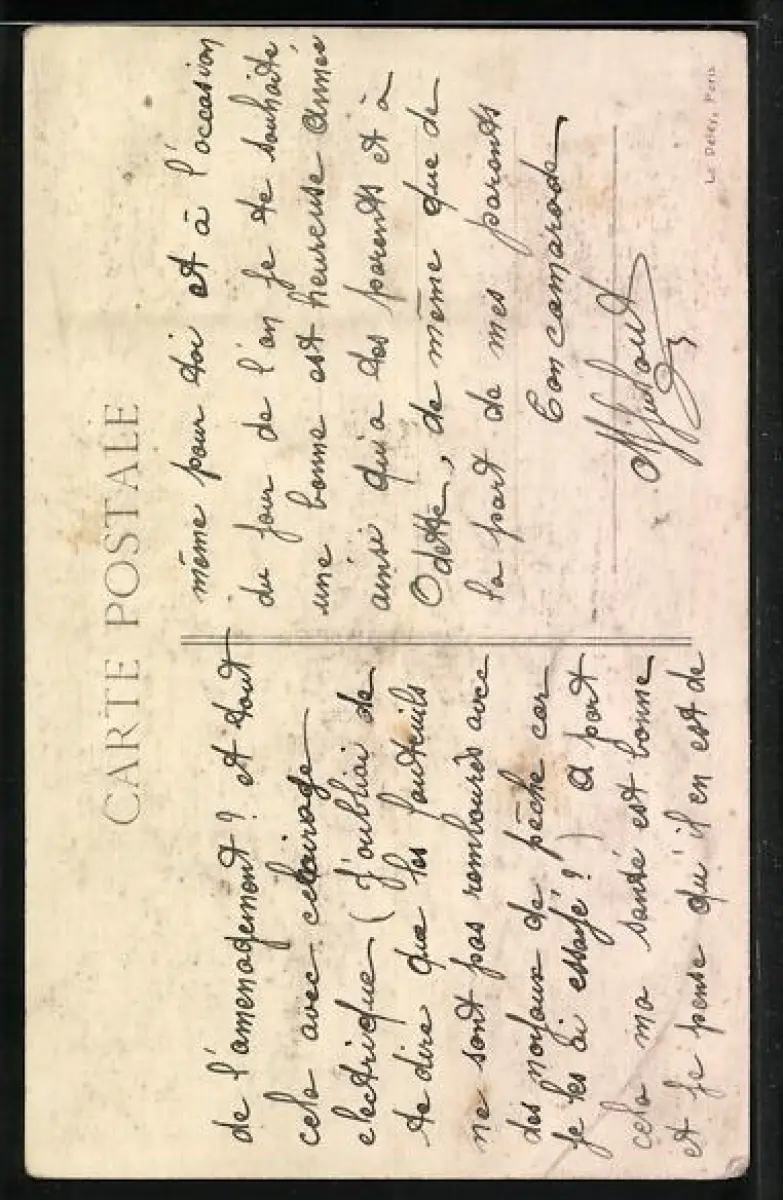 CARTE POSTALE
de l'amenagement? et tout
cela avec eclairage
electrique (J'oubliai de
te dire que les fauteuils
ne sont pas rembourés avec
des noyaux de pêche car
je les ai essayé?) A part
cela ma santé est bonne
et je pense qu'il en est de
même pour toi et à l'occasion
du jour de l'an je te souhaite
une bonne est heureuse année
ainsi qu'a tes parents et à
Odette, de même que de
la part de mes parents
Ton camarade
Le Deley, Paris